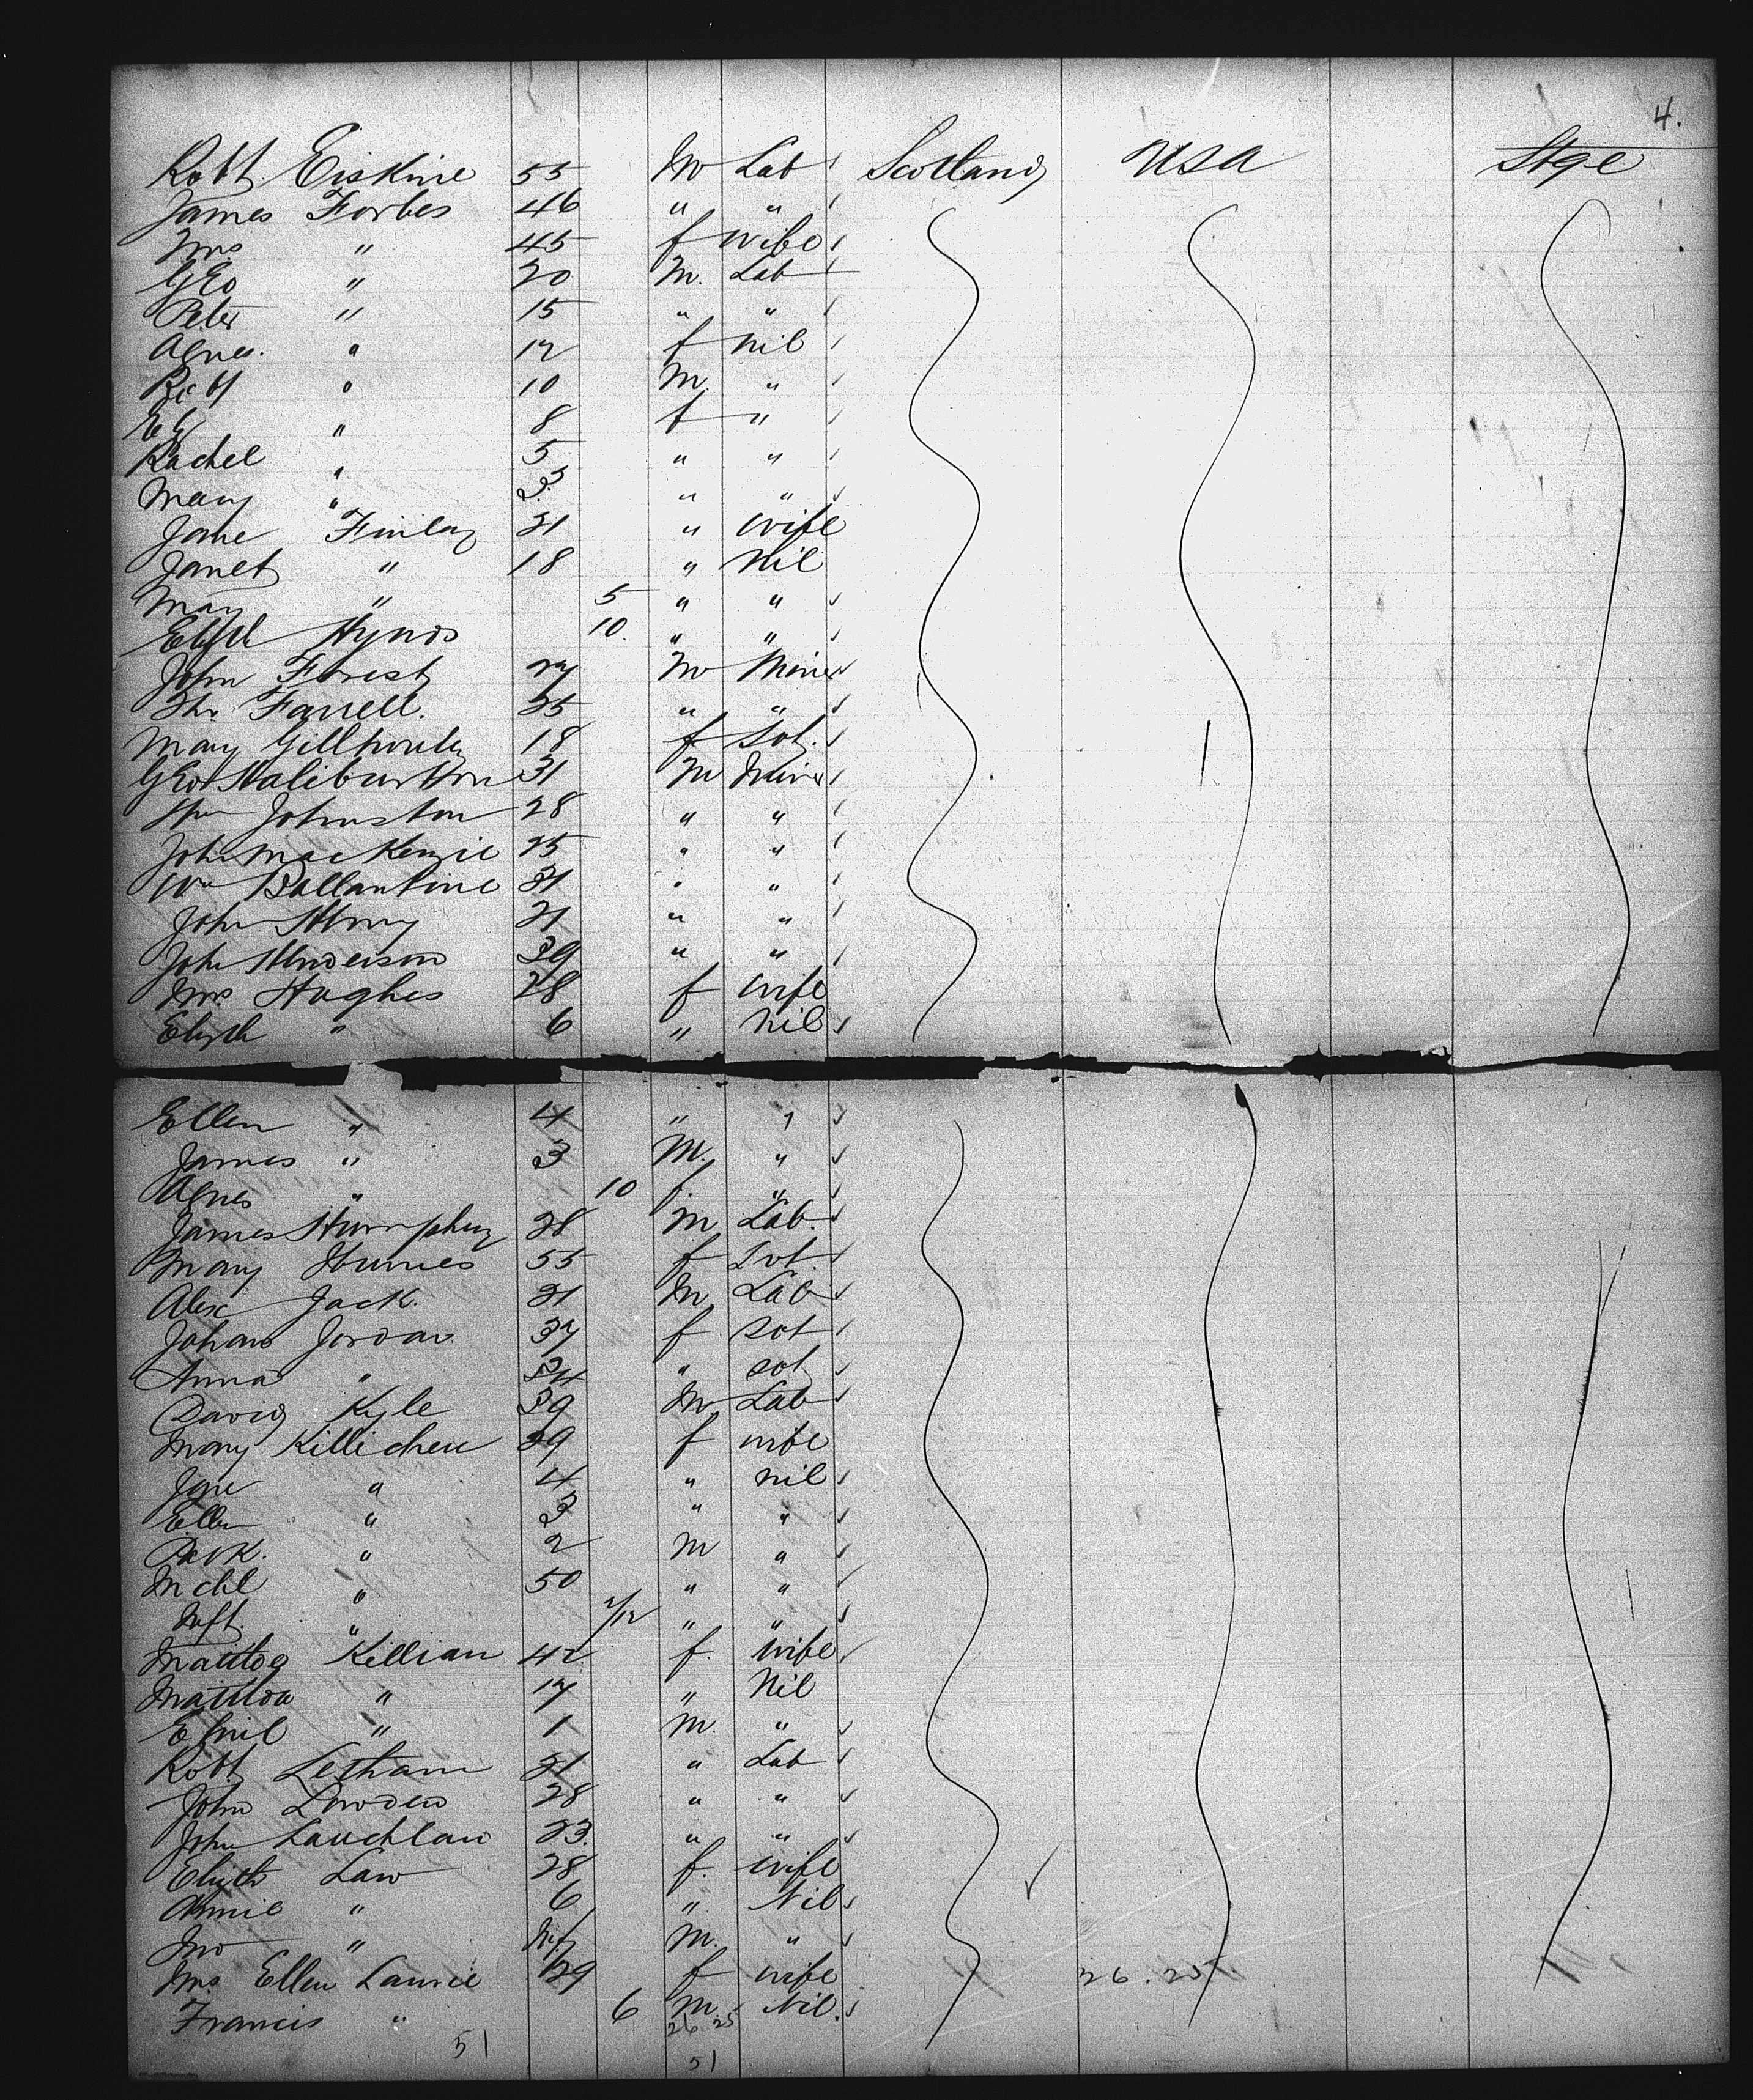 4.
Robt. Erskine 55 M Lab Scotland USA Stge
James Forbes 46 " "
Mrs " 45 f wife
Geo " 20 M. Lab
Peter " 15 " "
Agnes. " 12 f Nil
Robt " 10 M. "
" 8 f "
Rachel " 5 " "
Mary " " "
Jane Finlay 21 " wife
Janet " 18 " Nil
May " 5 " "
Hynds 10. " "
John Forest 27 M Miner
Farrell. 25 " "
Mary 18 f Svt.
Geo Haliburton 31 M Miner
Johnston 28 " "
John MacKenzie 25 " "
Wm Ballantine 21 " "
John 21 " "
John Henderson 39 " "
Mrs Hughes 28 f wife
Elizth " 6 " Nil
Ellen " 4 " "
James " 3 M. "
Agnes " 10 f. "
James Humphrey 28 M Lab.
Mary 55 f Svt.
Alex Jack. 21 M Lab
Jordan 37 f Svt
Anna " " Svt
David Kyle 39 M Lab
Mary 29 f wife
Jane " 4 " nil
Ellen " 3 " "
" 2 M "
Mchl " 50 " "
Inft. " 2/12 " "
Killian 42 f. wife
Matilda " 17 " Nil
Emil " 1 M. "
Robt Letham 21 " Lab
John Lowden 28 " "
John Lauchlan 23. " "
Elizth Law 28 f. wife
Annie " 6 " Nil
Jno " Inf M. "
Mrs Ellen Laurie 29 f wife 26.25
Francis " 6 M. Nil.
26 25
51 51